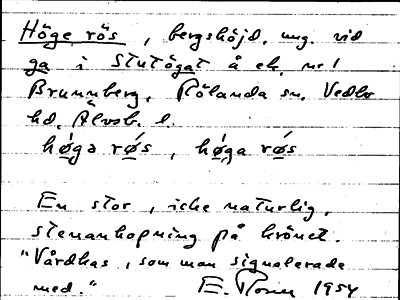 Höge rös, bergshöjd, ung. vid
ga i Stutögat å ek. nr 1
Brunnberg, Rölanda sn, Vedbo
hd, Älvsb. l.
høga røs, høga røs
En stor, icke naturlig,
stenanhopning på krönet.
"Vårdkas, som man signalerade
med." E. 1954